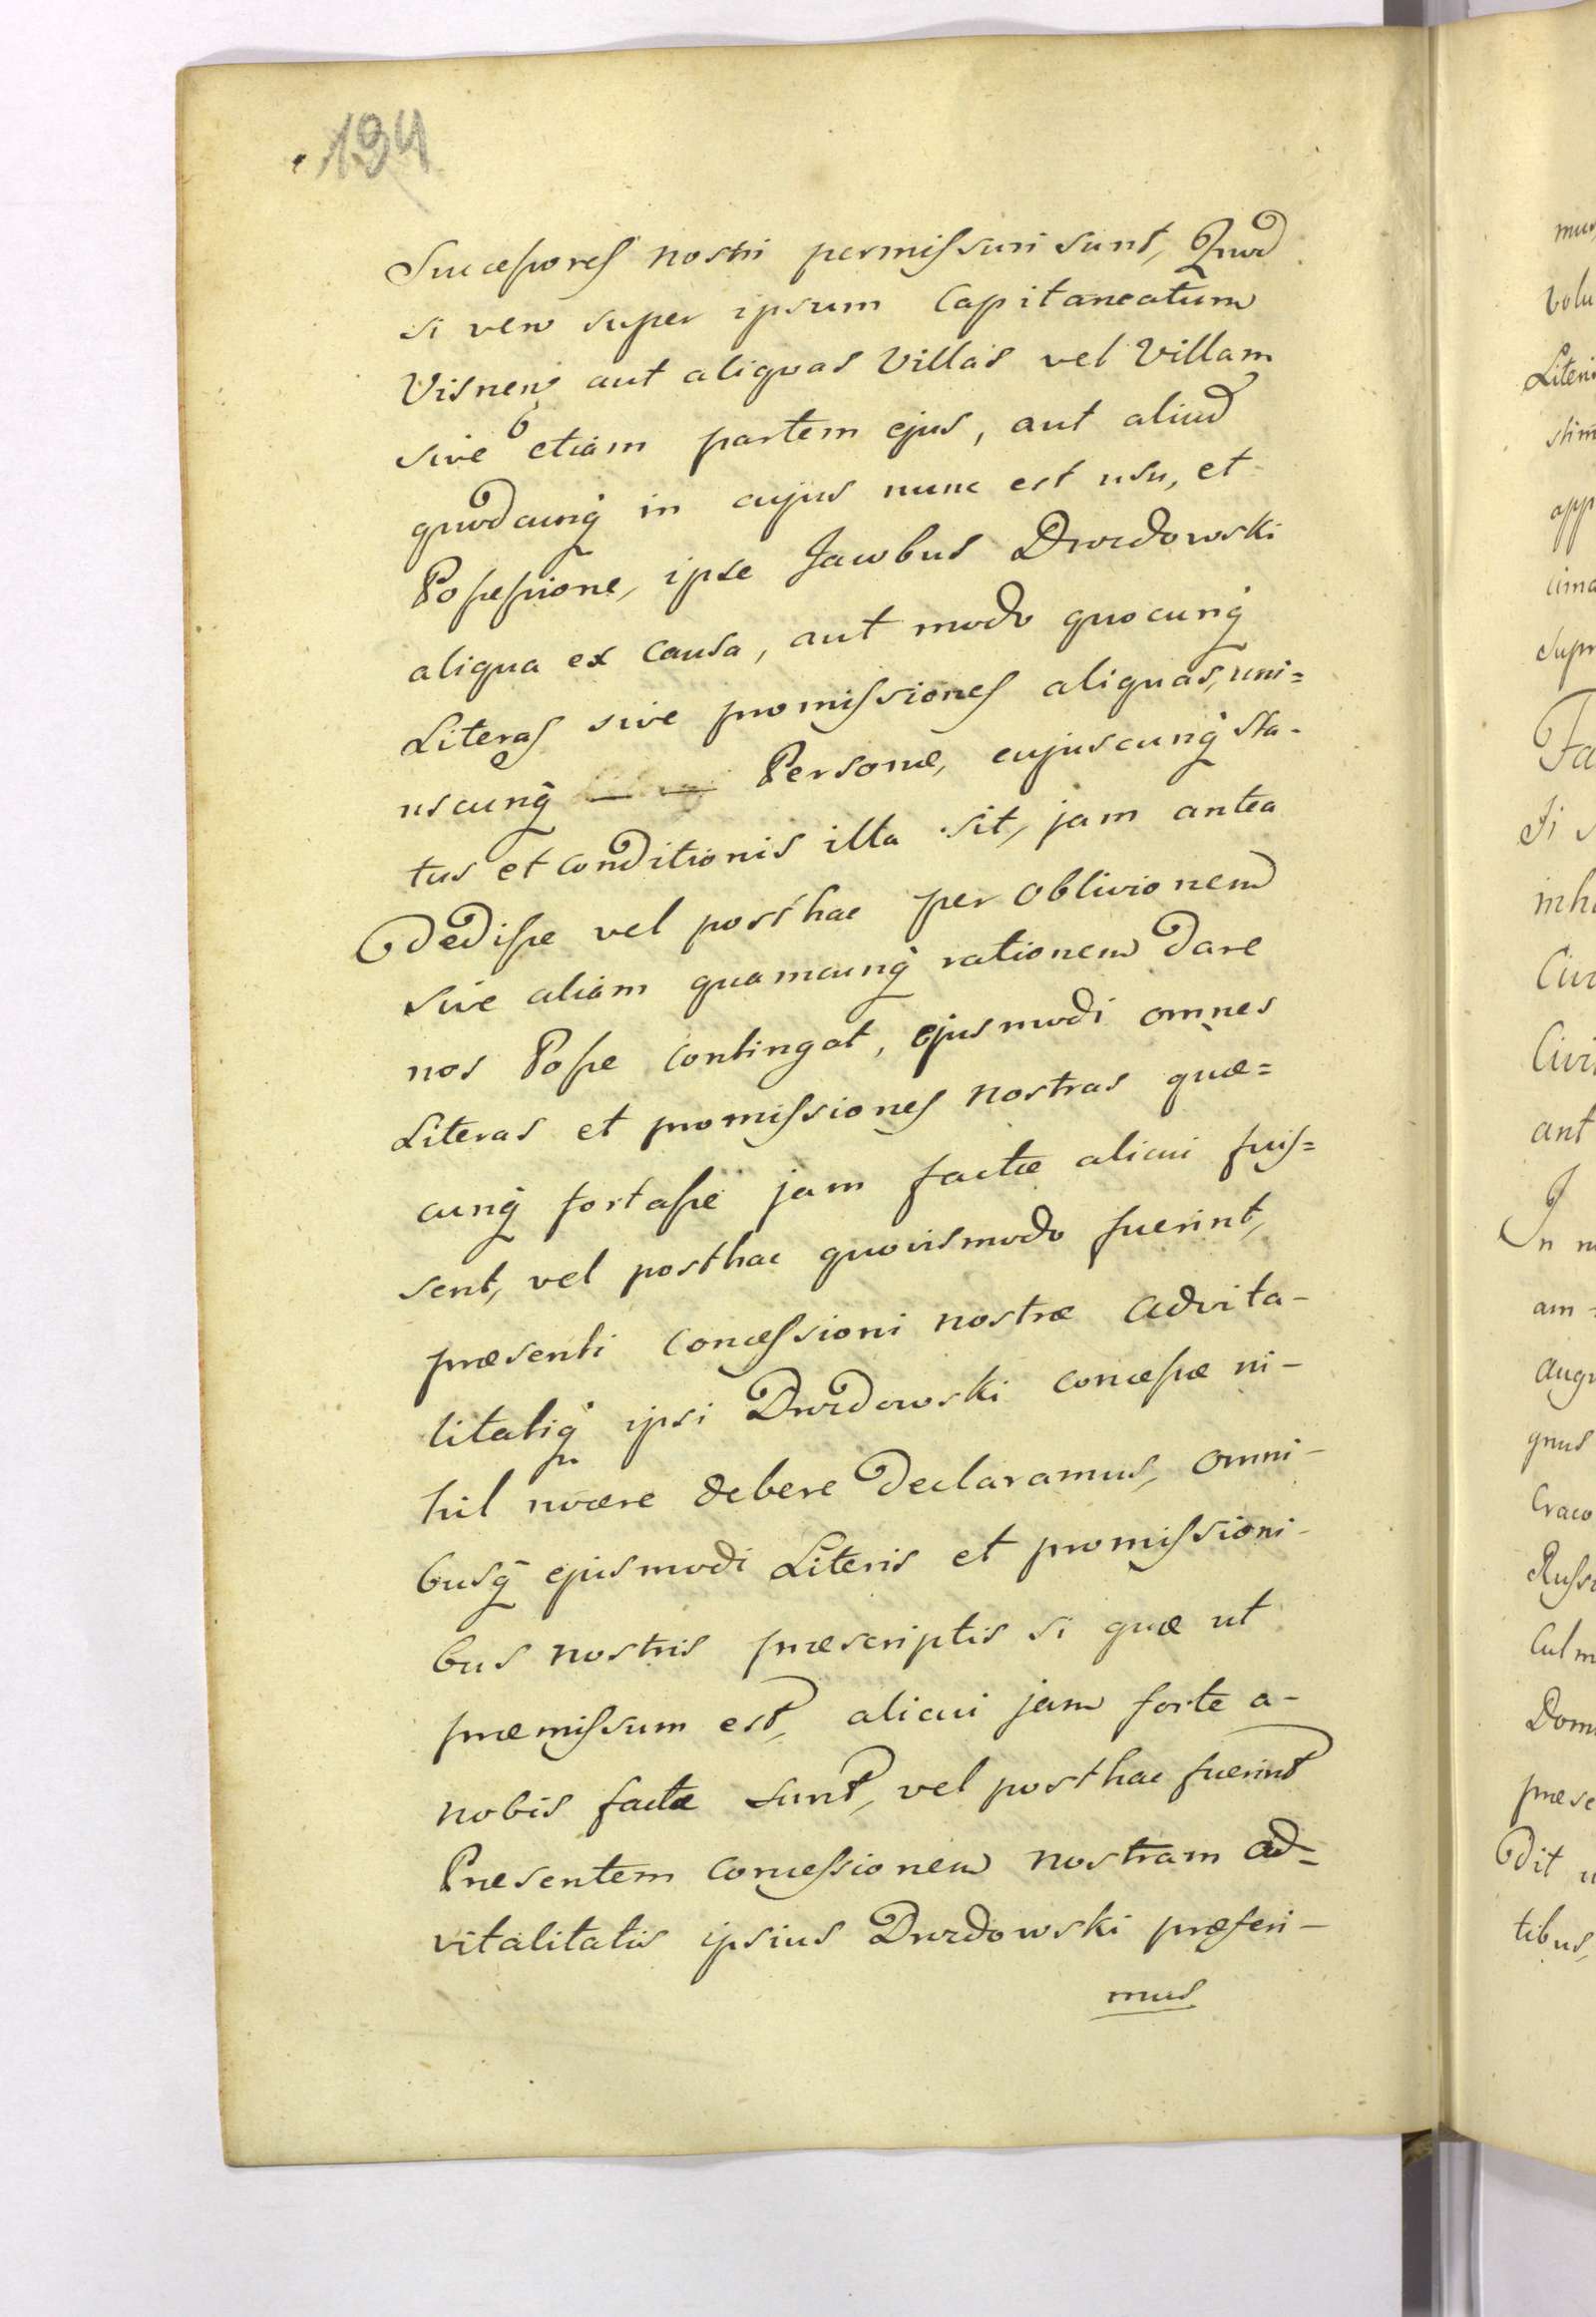 194
Successores nostri permissuri sunt, Quod
si vero super ipsum Capitaneatum
Visnen aut aliquas Villas vel Villam
sive etiam partem ejus, aut aliud
quodcunq in cujus nunc est usu, et
Possessione, ipse Jacobus Drozdowski
aliqua ex causa, aut modo quocunq
Literas sive promissiones aliquas, uni=
uscunq Personæ, cujuscunq sta-
tus et conditionis illa sit, jam antea
Dedisse vel posthac per oblivionem
sive aliam quamcunq rationem Dare
nos Posse contingat, ejusmodi omnes
Literas et promissiones nostras quæ=
cunq fortasse jam factæ alicui fuis=
sent, vel posthac quovismodo fuerint,
præsenti concessioni nostræ advita-
litatiq ipsi Drozdowski concessæ ni-
hil nocere debere Declaramus, omni-
busq ejusmodi Literis et promissioni-
bus nostris præscriptis si quæ ut
præmissum est, alicui jam forte a-
nobis factæ sunt, vel posthac fuerint
Præsentem concessionem nostram ad=
vitalitatis ipsius Drozdowski præferi-
mus
mus
volu
Literi
app
Supr
Fa
inh
Civi
ant
In n
am=
augu
gnus
Craco
Russi
Culm
Dom
præse
Dit
tibus,